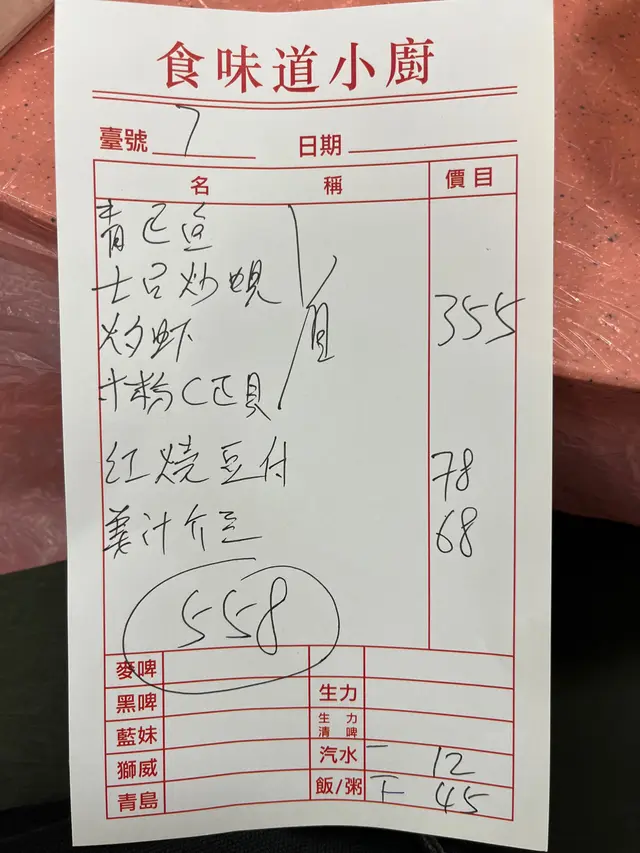 食味道小廚
臺號 7 日期
名稱 價目
青
士召炒蜆
灼虾 355
米粉
红燒豆付 78
姜汁介兰 68
558
麥啤
黑啤 生力
藍妹 生力清啤
獅威 汽水 二 12
青島 飯/粥 下 45